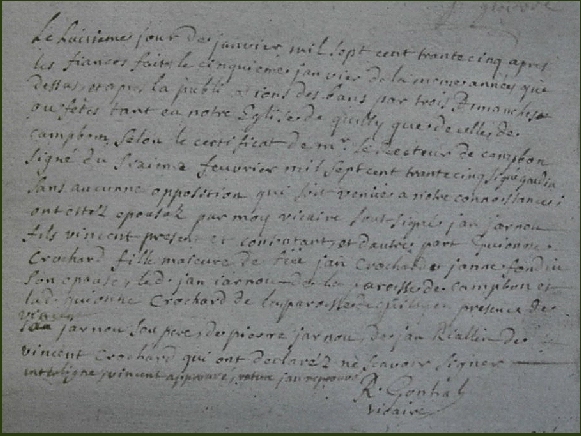 Le huitieme jour de janvier mil sept cent trante cinq apres
les fiances faits le cinquieme janvier de la meme année que
dessus et apres la publications des bans par trois Dimanches
ou fêtes tant en notre Eglise de quilly que de celle de
campbon selon le certificat de mr. le Recteur de campbon
signé du sixieme feuvrier mil sept cent trante cinq signé
sans aucunne opposition qui soit venüe a notre connoissance
ont estez epousez par moy vicaire soussigné jan jarnou
fils vincent present et consentant et d'autre part Guionne
Crochard fille maieure de feu jan Crochard et janne
son epouse led. jan jarnou de la paroisse de campbon et
lad. guionne Crochard de la paroisse de quilly en presence de
jarnou son pere de pierre jarnou de jan Riallin de
vincent Crochard qui ont declarez ne scavoir signer
interligne vincent approuvé rature jan reprouvé
R. Gontial
vicaire